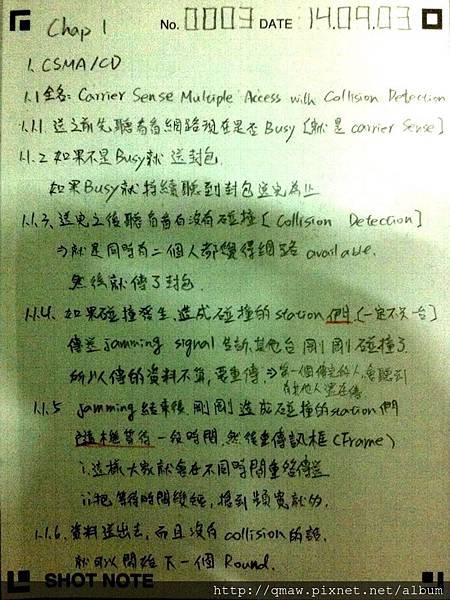 Chap 1 No. 0003 DATE 14.09.03
1. CSMA/CD
1.1 全名: Carrier Sense Multiple Access with Collision Detection
1.1.1. 送之前先聽看看網路現在是否 Busy [就是 carrier Sense]
1.1.2 如果不是Busy就送封包.
如果Busy就持續聽到封包送完為止
1.1.3. 送完之後聽看看有沒有碰撞 [Collision Detection]
⇒就是同時有二個人都覺得網路 available.
然後就傳了封包.
1.1.4. 如果碰撞發生, 造成碰撞的station們 (一定不只一台)
傳送 jamming signal 告訴其他台 剛剛碰撞了
所以傳的資料不算, 要重傳. ⇒第一個傳完的人, 會聽到
有其他人還在傳
1.1.5 jamming結束後剛剛造成碰撞的station們
隨機等待一段時間, 然後重傳訊框 (Frame)
i. 這樣大家就會在不同時間重新傳送
ii. 把等待時間變短, 搶到頻寬就
1.1.6. 資料送出去, 而且沒有 collision 的話,
就可以開始下一個 Round.
SHOT NOTE
http://qmaw.pixnet.net/album